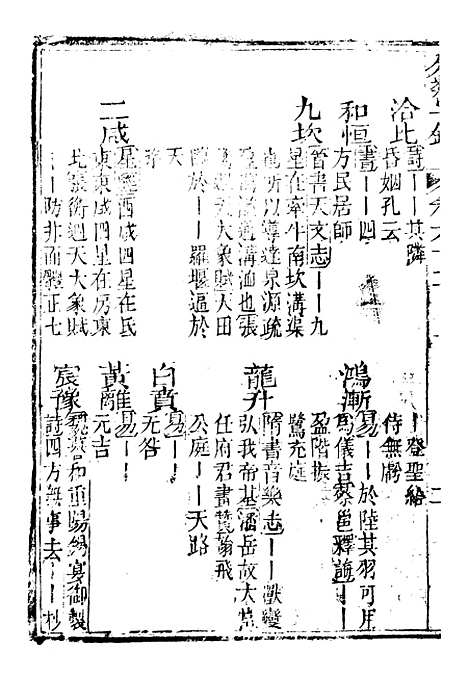 洽比詩——其鄰
昏姻孔云
和恒書——四
方民居師
九坎晉書天文志——九
星在牽牛南坎溝渠
也所以導達泉源疏
溝洫也張
天大象賦天田
於——羅堰逼於
天
二咸星經西咸四星在氐
東東咸四星在房東
北張衡週天大象賦
——防非而體正七
——登聖給
侍無闕
鴻漸易——於陸其羽可用
為儀吉蔡邕釋誨——
盈階振
鷺充庭
龍升隋書音樂志——獸變
弘我帝基潘岳故大常
任府君畫贊翰飛
公庭——天路
白賁易——
无咎
黃離易——
元吉
宸豫和重陽錫宴御製
詩四方無事去——杪